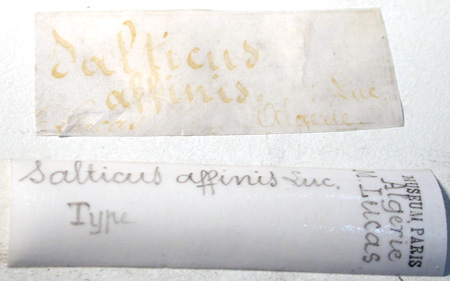 Salticus
affinis. Luc.
Algérie
Salticus affinis Luc.
Type
MUSEUM PARIS
Algérie
M. Lucas